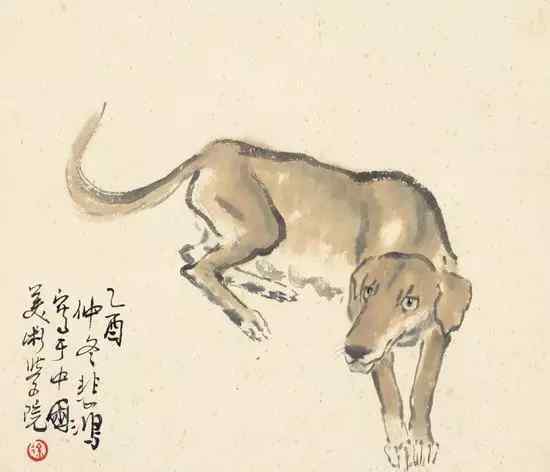 乙酉
仲冬悲鸿
写于中国
美术学院